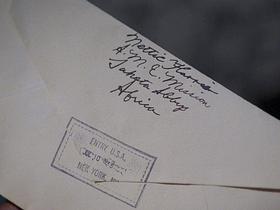 Nettie Harris
A. M. E. Mission
Africa
ENTRY U.S.A.
NEW YORK, N